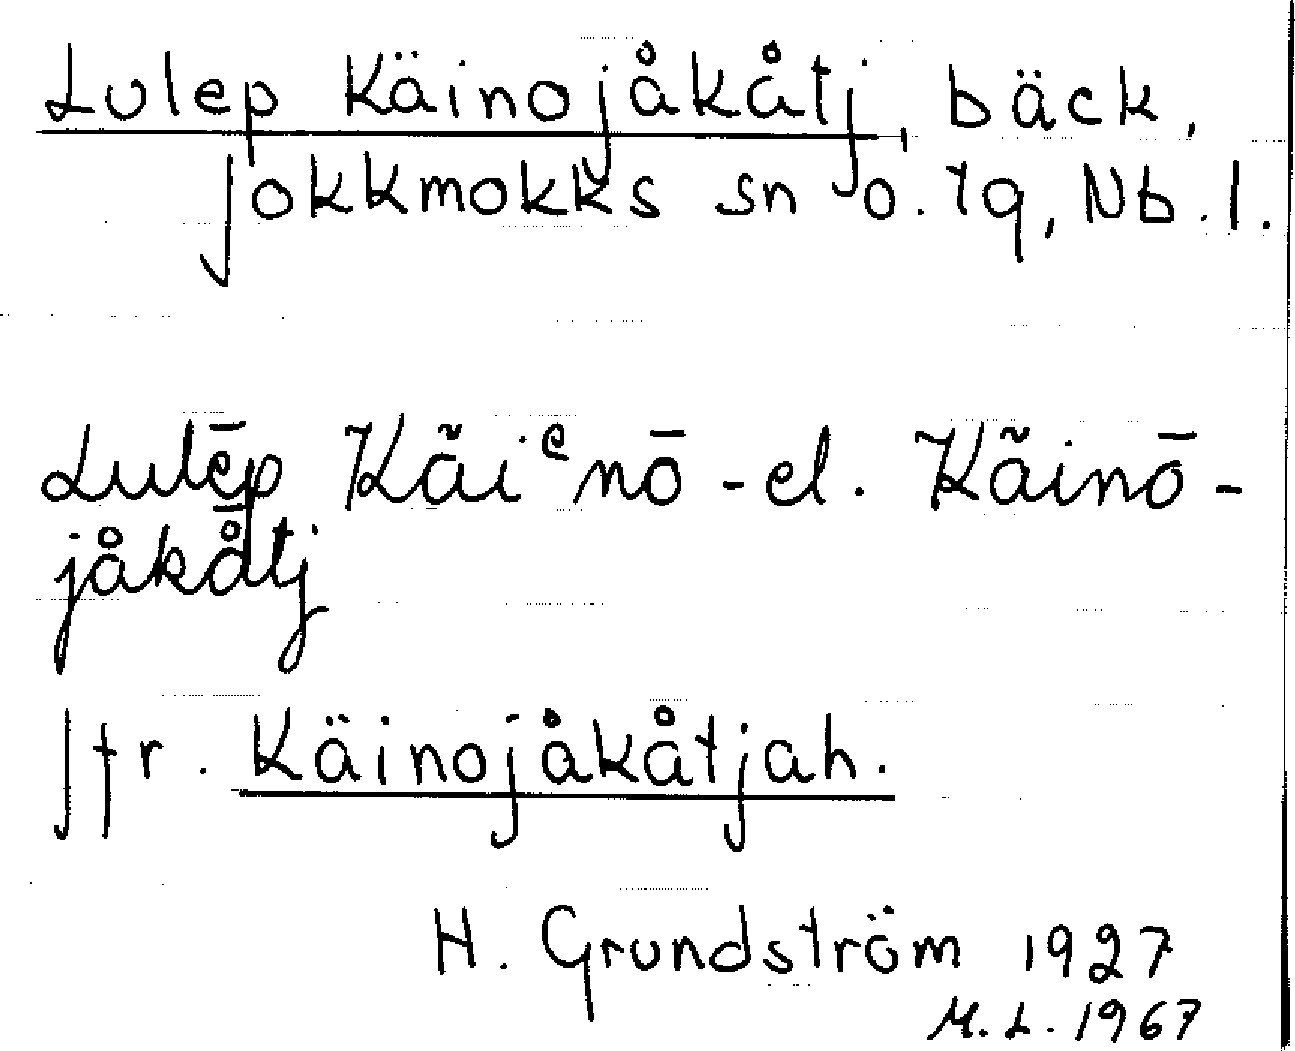 Lulep Käinojåkåtj, bäck,
Jokkmokks sn o. tg, Nb. l.
Lulēp Kä̃iᵉnō- el. Kä̃inō-
jåkå̄tj
Jfr. Käinojåkåtjah.
H. Grundström 1927
M. L. 1967